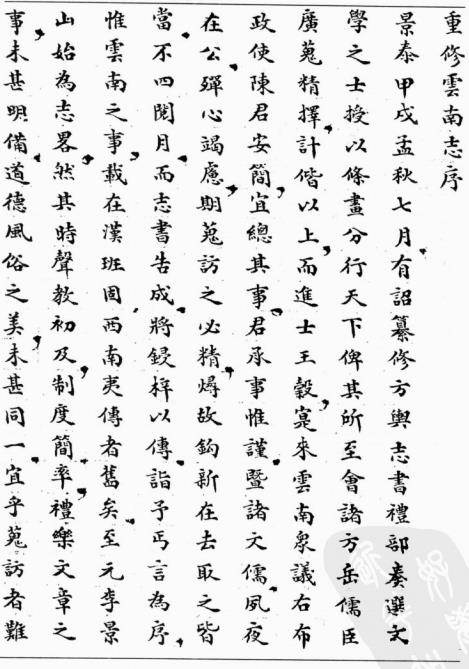 重修雲南志序
景泰甲戌孟秋七月有詔纂修方輿志書禮部奏選文
學之士授以條畫分行天下俾其所至會諸方岳儒臣
廣蒐精擇計偕以上而進士王榖寔來雲南衆議右布
政使陳君安簡宜總其事君承事惟謹暨諸文儒夙夜
在公殫心竭慮期蒐訪之必精燖故鉤新在去取之皆
當不四閱月而志書告成將鋟梓以傳詣予丐言為序
惟雲南之事載在漢班固西南夷傳者舊矣至元李景
山始為志畧然其時聲教初及制度簡率禮樂文章之
事未甚明備道德風俗之美未甚同一宜乎蒐訪者難